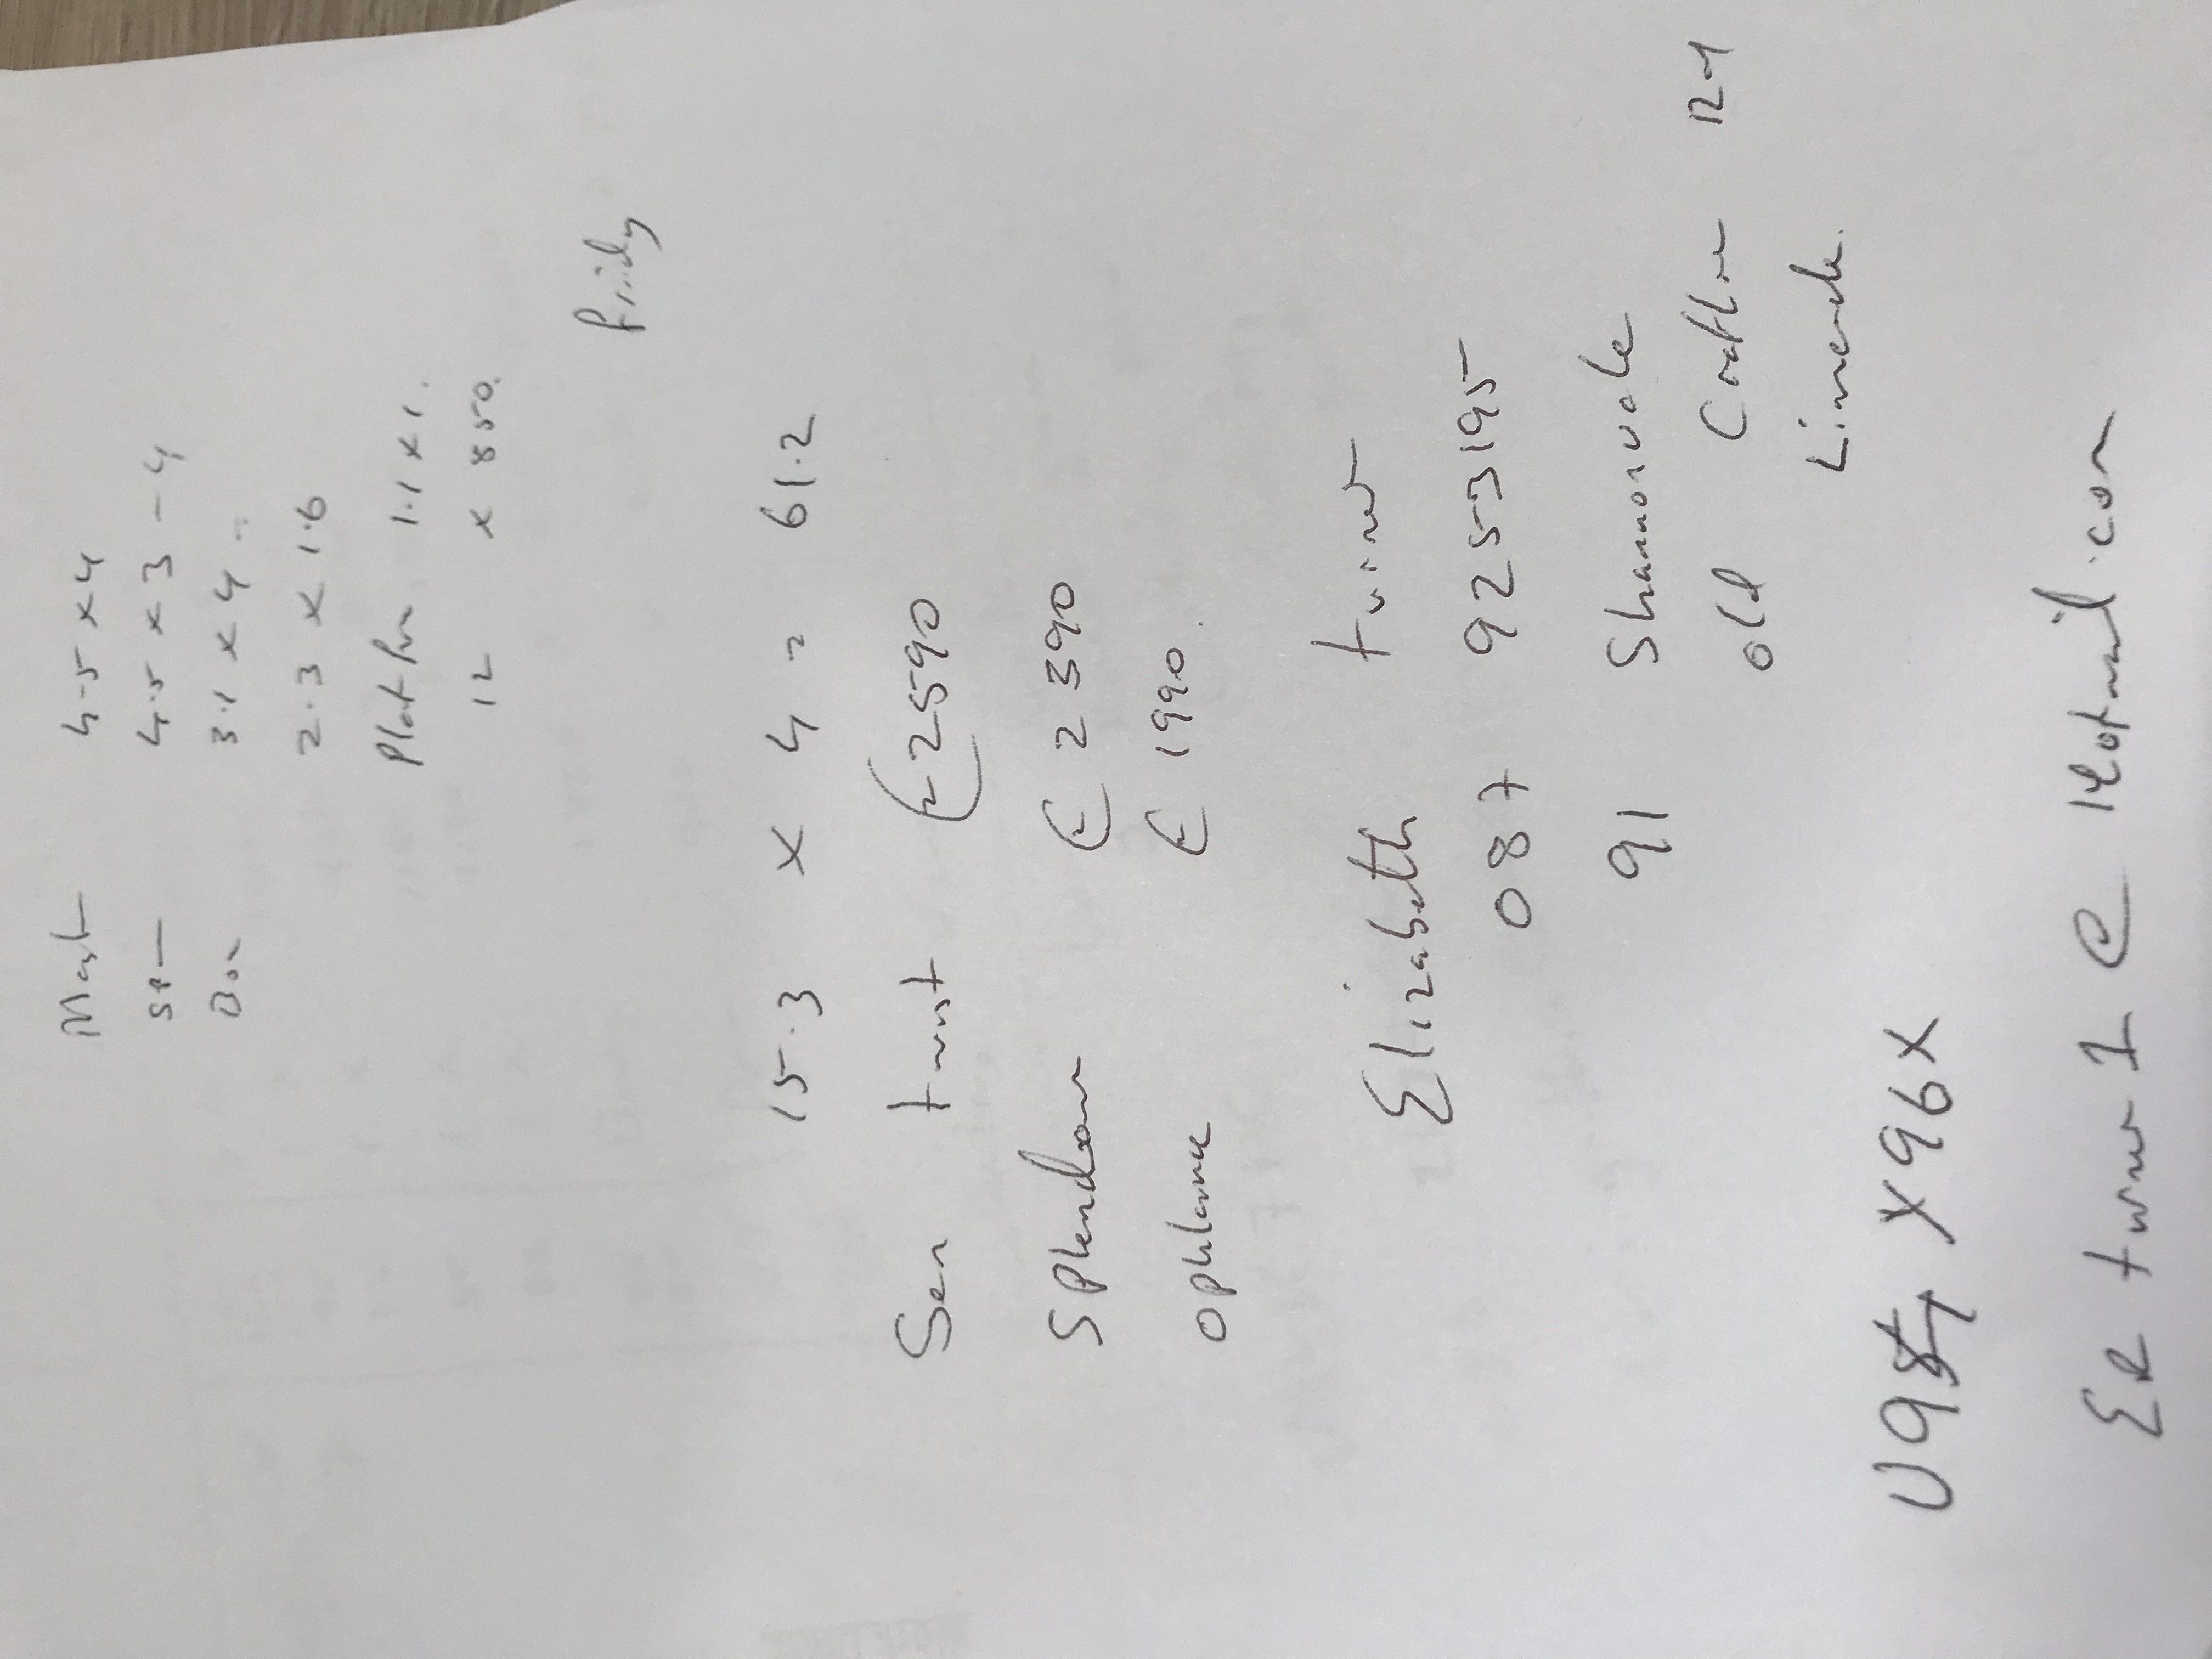 Mast 4.5 x 4
Spr 4.5 x 3 - 4
Box 3.1 x 4 =
2.3 x 1.6
Platfrm 1.1 x 1.
12 x 850.
Friday
15.3 x 4 = 61.2
Sen twist € 2590
Splendour € 2390
Opulance € 1990.
Elizabeth turner
087 9253195
91 Shannonvale
old Cratloe rd
Limerick.
V94 Y96X
ER turner1@Hotmail.com